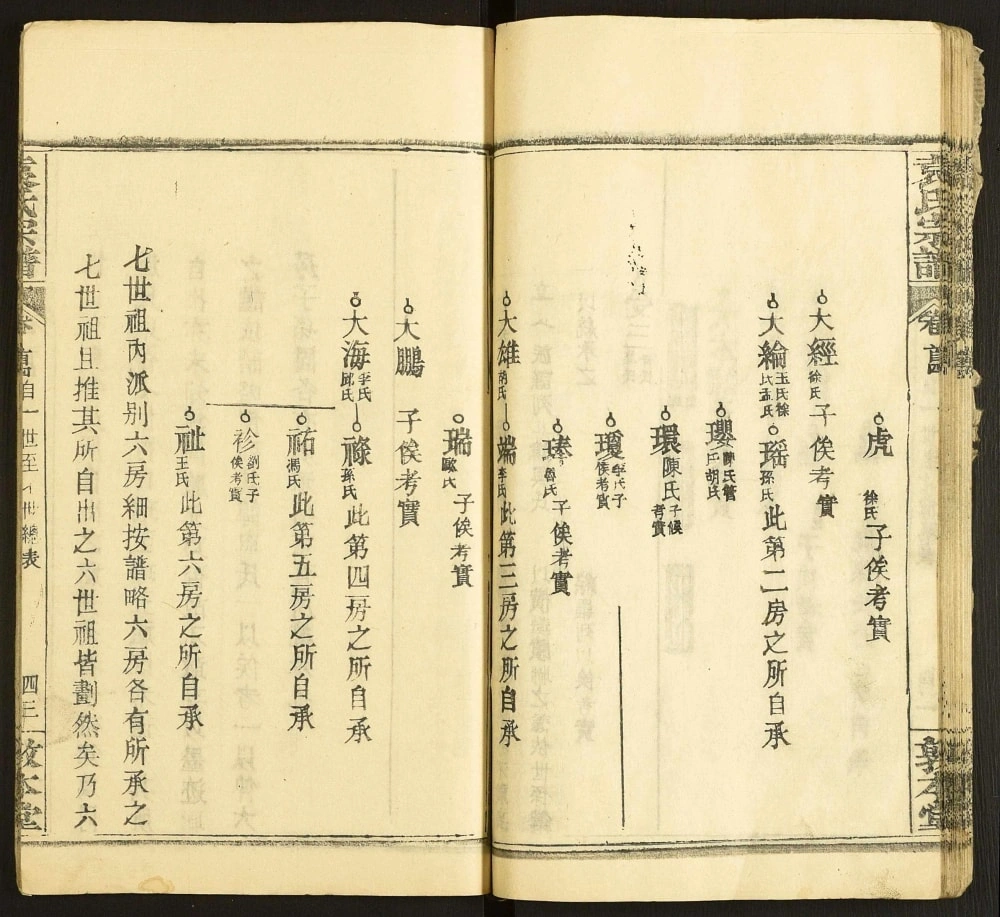 袁氏宗譜
卷首
敦本堂
虎 徐氏 子俟考實
大經 徐氏 子俟考實
大綸 王氏徐氏孟氏 瑶 孫氏 此第二房之所自承
瓔
環 陳氏 子俟考實
瓊 李氏子俟考實
魯氏 子俟考實
大雄 胡氏 端 李氏 此第三房之所自承
瑞 歐氏 子俟考實
大鵬 子俟考實
大海 李氏邱氏 祿 孫氏 此第四房之所自承
祐 馮氏 此第五房之所自承
袗 劉氏子俟考實
祉 王氏 此第六房之所自承
七世祖內派别六房細按譜略六房各有所承之
七世祖且推其所自出之六世祖皆劃然矣乃六
袁氏宗譜
自一世至 世總表
四三
敦本堂